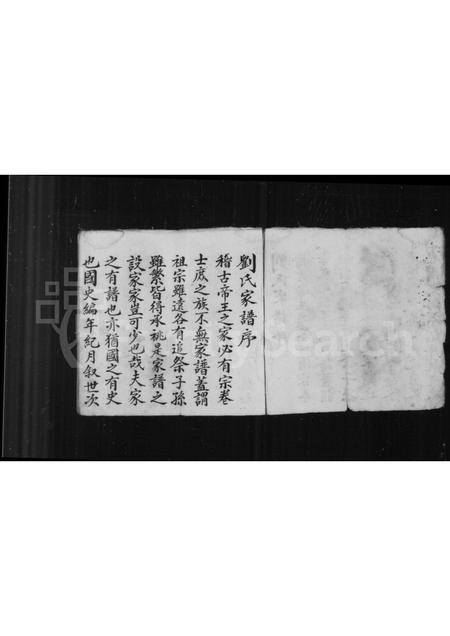 劉氏家譜序
稽古帝王之家必有宗卷
士庶之族不無家譜蓋謂
祖宗雖遠各有追祭子孫
雖繁皆得承祧是家譜之
設家家豈可少也哉夫家
之有譜也亦猶國之有史
也國史編年紀月叙世次
FamilySearch